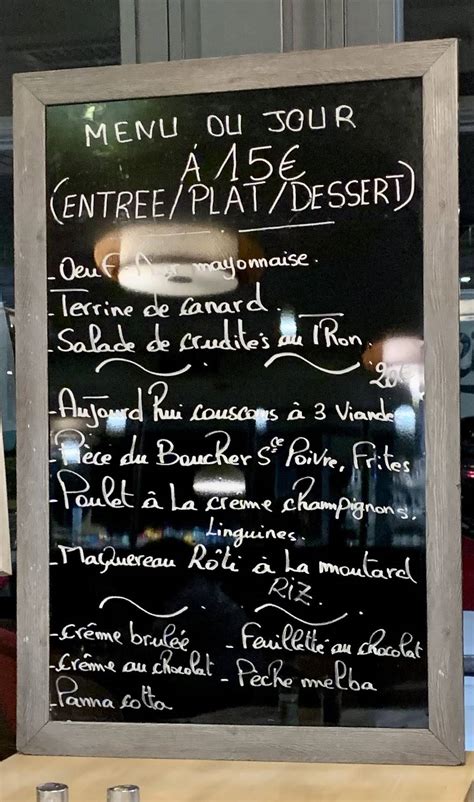 MENU DU JOUR
À 15€
(ENTREE/PLAT/DESSERT)
- Oeuf mayonnaise.
- Terrine de canard.
- Salade de crudités au Thon.
20€
- Aujourd'hui couscous à 3 Viande
- Pièce du Boucher Sce Poivre, Frites
- Poulet à La crème champignons.
Linguines.
- Maquereau Rôti à La moutard
RIZ.
- crème brulée - Feuilletté au chocolat
- crème au chocolat - Peche melba
- Panna cotta